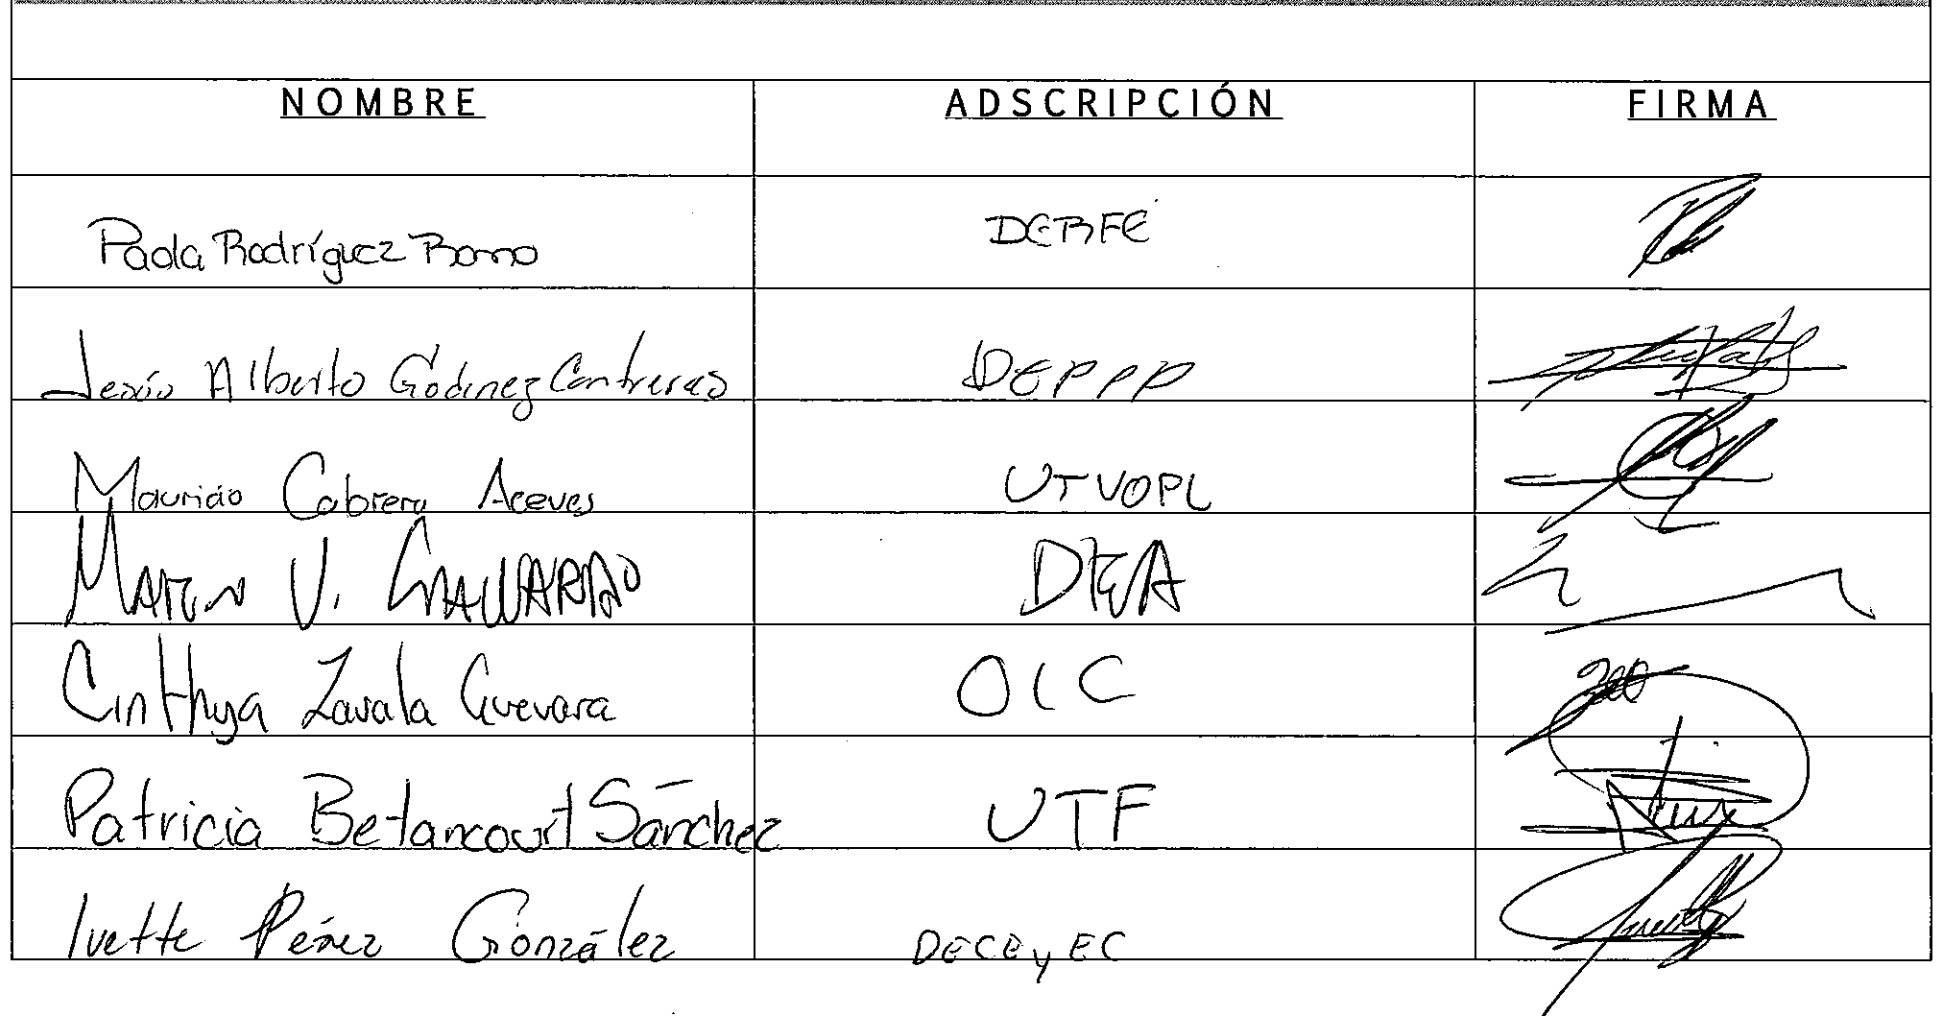 NOMBRE ADSCRIPCIÓN FIRMA
Paola Rodríguez Romo DERFE
Jesús Alberto Godinez Contreras DEPPP
Mauricio Cabrera Aceves UTVOPL
V. DEA
Cinthya Zavala Guevara OIC
Patricia Betancourt Sánchez UTF
Ivette Pérez González DECEyEC